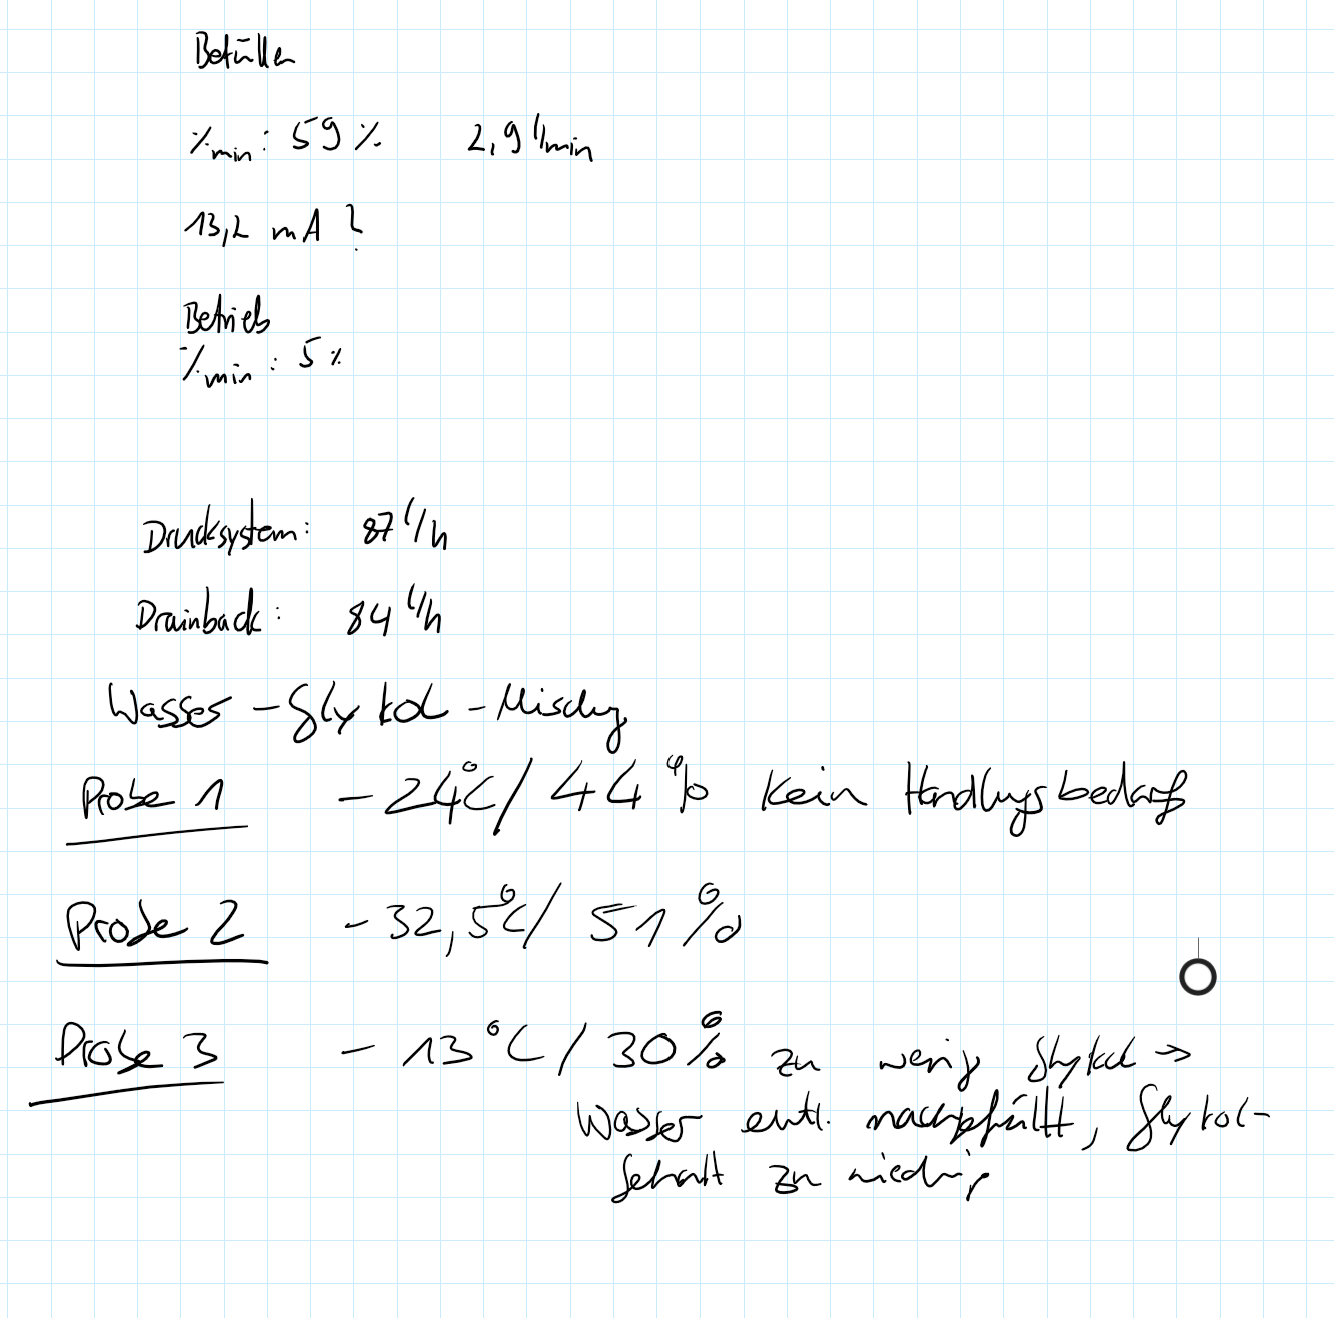 Befüllen
%min: 59 % 2,9 l/min
13,2 mA ?
Betrieb
%min: 5 %
Drucksystem: 87 l/h
Drainback: 84 l/h
Wasser-Glykol-Mischung
Probe 1 -24°C/ 44 % Kein Handlungsbedarf
Probe 2 -32,5°C/ 51 %
Probe 3 -13°C / 30 % zu wenig Glykol →
Wasser evtl. nachgefüllt, Glykol-
Gehalt zu niedrig